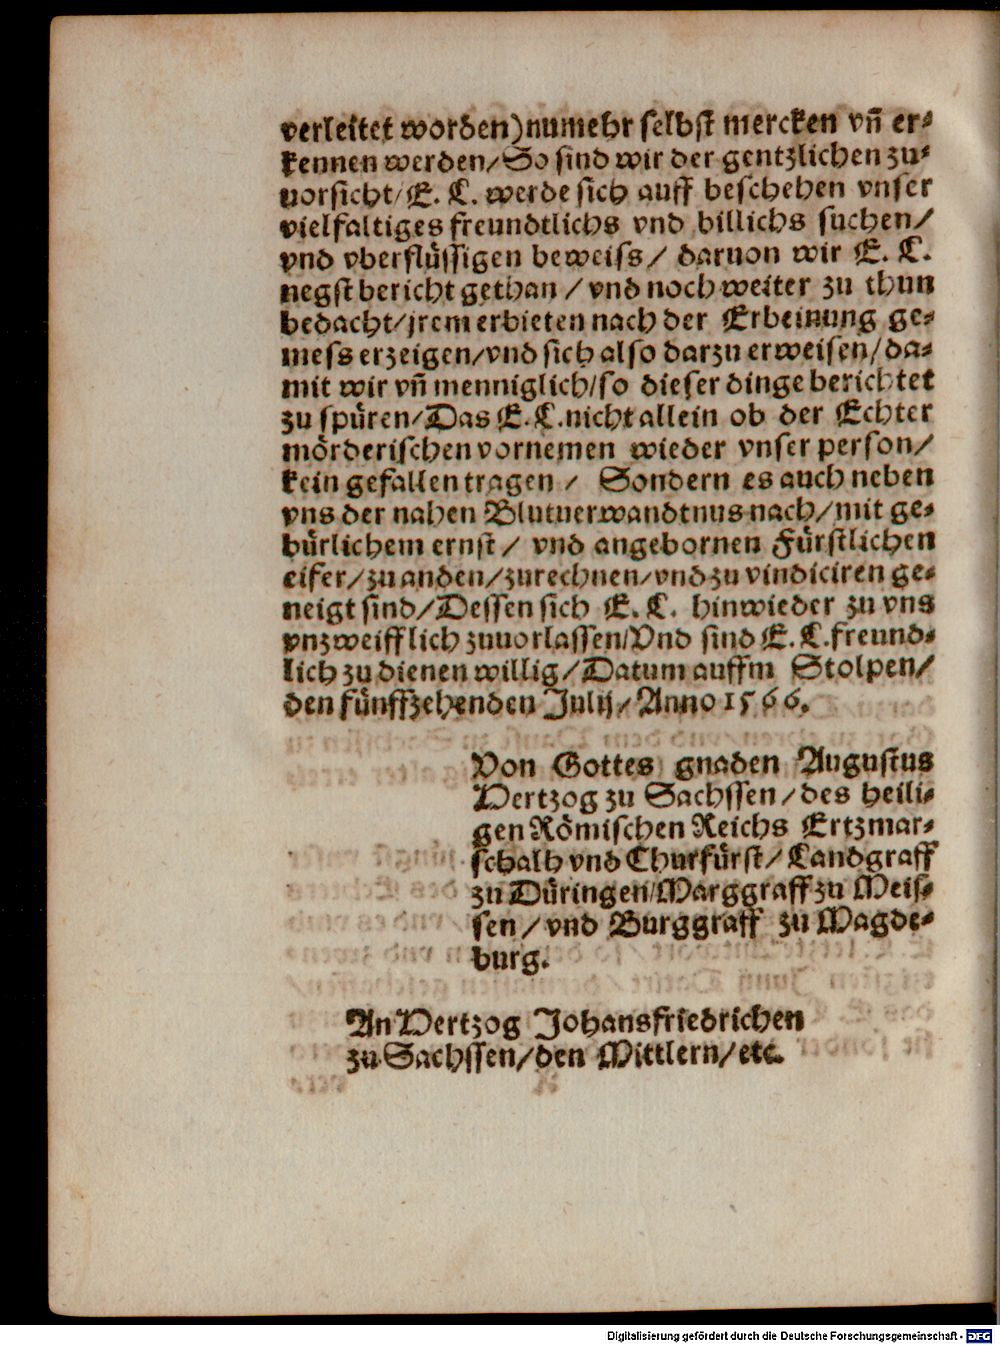 verleitet worden)numehr selbst mercken vn̄ er⸗
kennen werden/So sind wir der gentzlichen zu⸗
uorsicht/E. L. werde sich auff beschehen vnser
vielfaltiges freundtlichs vnd billichs suchen/
vnd vberflüssigen beweiss/ daruon wir E. L.
negst bericht gethan / vnd noch weiter zu thun
bedacht/jrem erbieten nach der Erbeinung ge⸗
mess erzeigen/vnd sich also darzu erweisen/da⸗
mit wir vn̄ menniglich/so dieser dinge berichtet
zu spüren/Das E. L. nicht allein ob der Echter
mörderischen vornemen wieder vnser person/
kein gefallen tragen / Sondern es auch neben
vns der nahen Blutuerwandtnus nach/mit ge⸗
bürlichem ernst/ vnd angebornen Fürstlichen
eifer/zu anden/zurechnen/vnd zu vindiciren ge⸗
neigt sind/Dessen sich E. L. hinwieder zu vns
vnzweifflich zuuorlassen/Vnd sind E. L. freund⸗
lich zu dienen willig/Datum auffm Stolpen/
den fünffzehenden Julij/Anno 1566.
Von Gottes gnaden Augustus
Hertzog zu Sachssen/des heili⸗
gen Römischen Reichs Ertzmar⸗
schalh vnd Churfürst/Landgraff
zu Düringen/Marggraff zu Meis⸗
sen/vnd Burggraff zu Magde⸗
burg.
An Hertzog Johansfriedrichen
zu Sachssen/den Mittlern/etc.
Digitalisierung gefördert durch die Deutsche Forschungsgemeinschaft - DFG